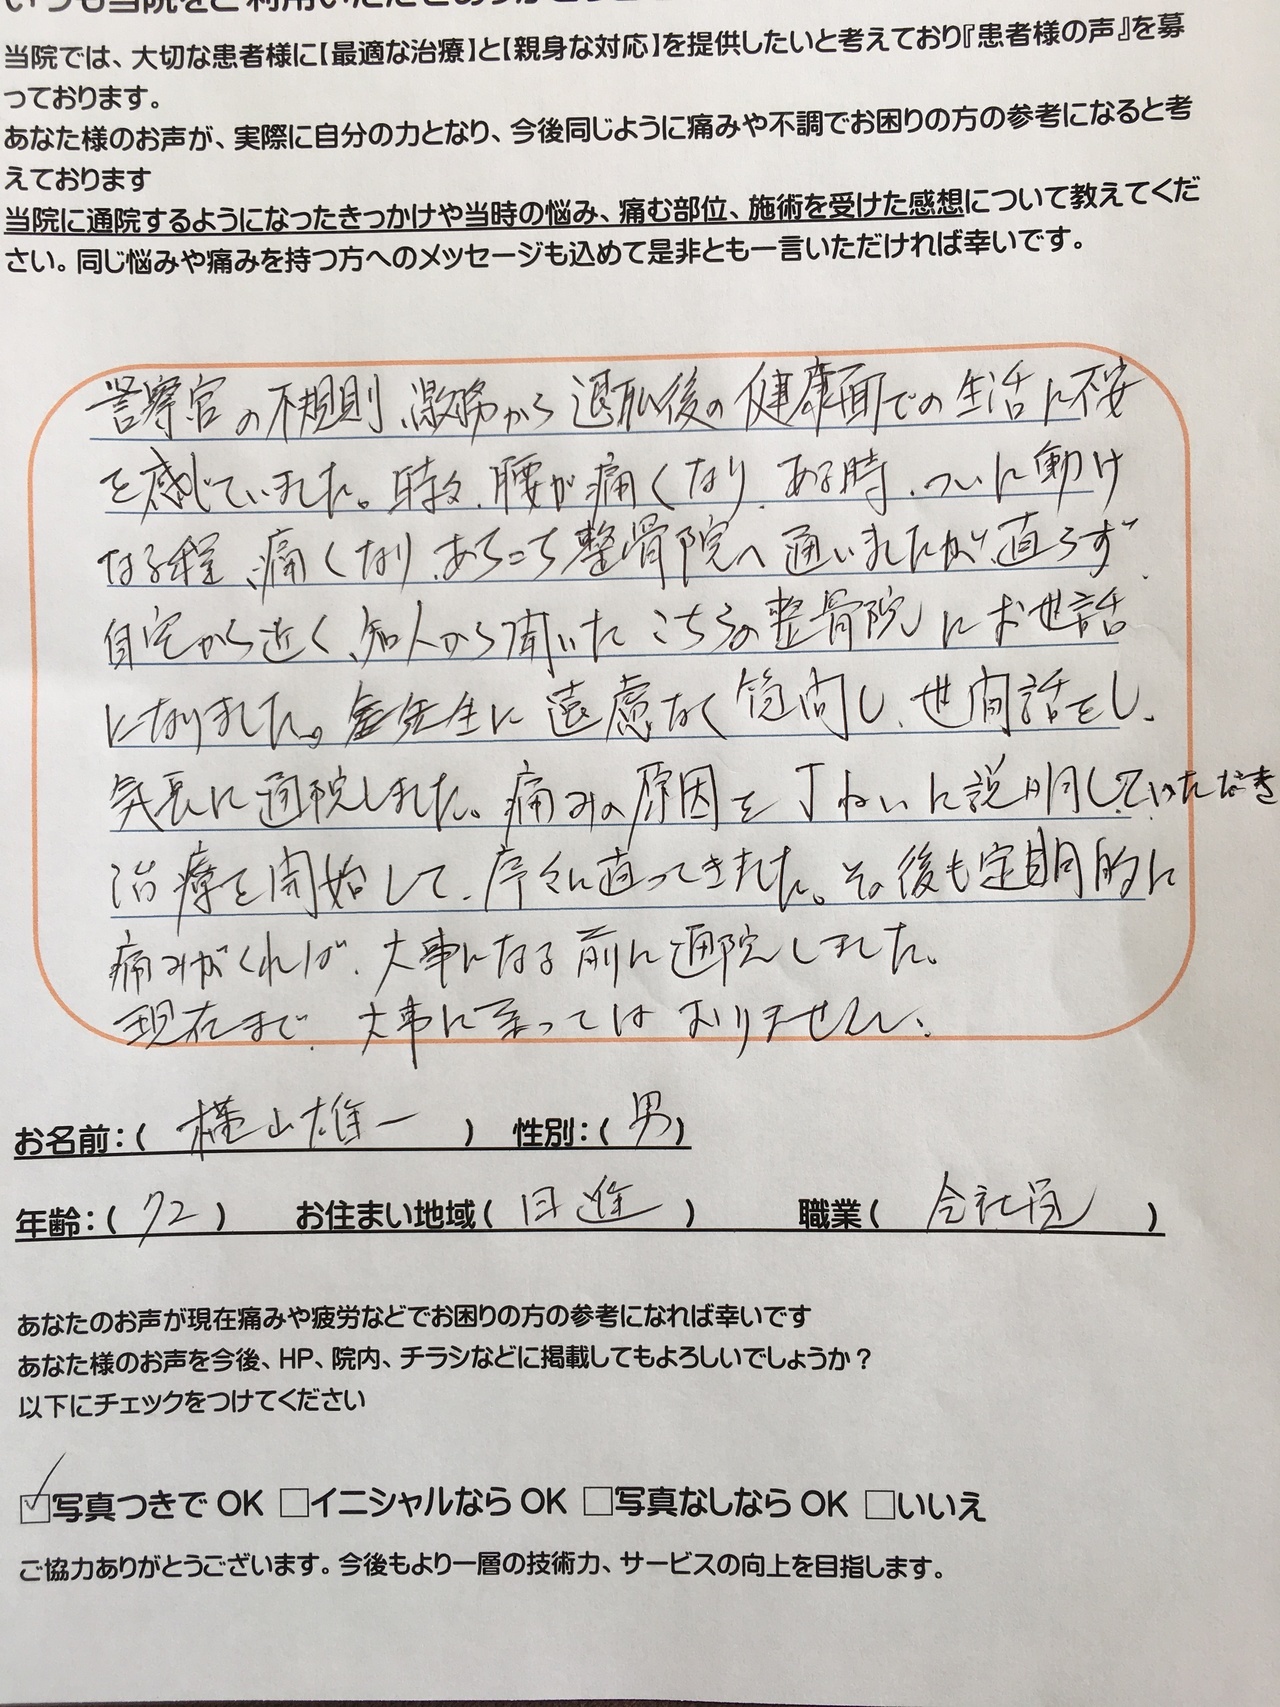 いつも当院をご利用いただきありがとうご
当院では、大切な患者様に【最適な治療】と【親身な対応】を提供したいと考えており『患者様の声』を募
っております。
あなた様のお声が、実際に自分の力となり、今後同じように痛みや不調でお困りの方の参考になると考
えております
当院に通院するようになったきっかけや当時の悩み、痛む部位、施術を受けた感想について教えてくだ
さい。同じ悩みや痛みを持つ方へのメッセージも込めて是非とも一言いただければ幸いです。
警察官の不規則、激務から退職後の健康面での生活に不安
を感じていました。時々、腰が痛くなり、ある時、ついに動け
なる程、痛くなり、あちこち整骨院へ通いましたが、直らず、
自宅から近く、知人から聞いたこちらの整骨院にお世話
になりました。先生に遠慮なく質問し、世間話をし、
気長に通院しました。痛みの原因を丁ねいに説明していただき
治療を開始して、序々に直ってきました。その後も定期的に
痛みがくれば、大事になる前に通院しました。
現在まで、大事に至ってはおりません。
お名前：( 横山雄一 ) 性別：( 男 )
年齢：( 72 ) お住まい地域( 日進 ) 職業( 会社員 )
あなたのお声が現在痛みや疲労などでお困りの方の参考になれば幸いです
あなた様のお声を今後、HP、院内、チラシなどに掲載してもよろしいでしょうか？
以下にチェックをつけてください
☑写真つきで OK □イニシャルなら OK □写真なしなら OK □いいえ
ご協力ありがとうございます。今後もより一層の技術力、サービスの向上を目指します。